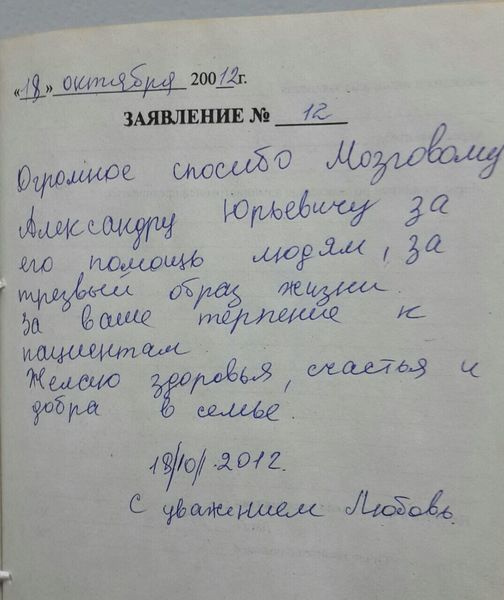 «18» октября 20012г.
ЗАЯВЛЕНИЕ № 12
Огромное спосибо Мозговому
Александру Юрьевичу за
его помощь людям, за
трезвый образ жизни.
За ваше терпение к
пациентам
Желаю здоровья, счастья и
добра в семье.
18/10/.2012.
С уважением Любовь.